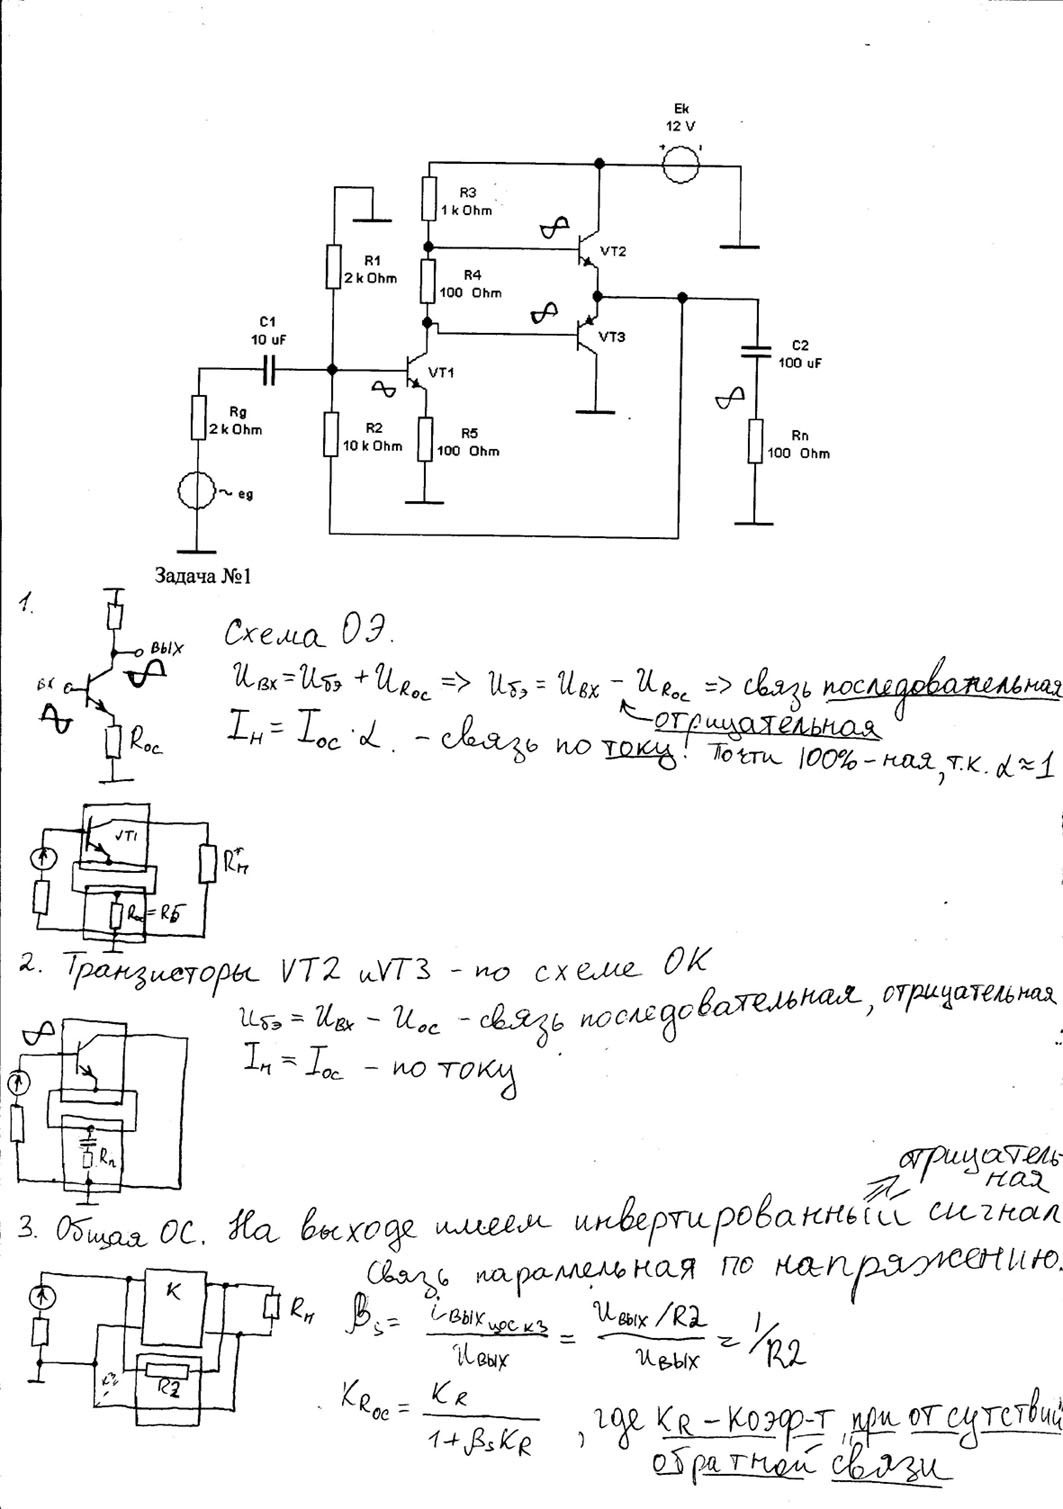 Ek
12 V
R3
1 k Ohm
VT2
R1
2 k Ohm
R4
100 Ohm
C1
10 uF
VT3
C2
100 uF
VT1
Rg
2 k Ohm
R2
10 k Ohm
R5
100 Ohm
Rn
100 Ohm
~ eg
Задача №1
1.
Схема ОЭ.
ВЫХ
вх
Uвх = Uбэ + URос => Uбэ = Uвх − URос => связь последовательная
отрицательная
Rос
Iн = Iос · α. – связь по току! Почти 100%-ная, т.к. α ≈ 1
VT1
Rн*
Rос = R5
2. Транзисторы VT2 и VT3 - по схеме ОК
Uбэ = Uвх − Uос - связь последовательная, отрицательная
Iн = Iос – по току
Rn
отрицатель-
ная
3. Общая ОС. На выходе имеем инвертированный сигнал
Связь параллельная по напряжению.
K
Rн
R2
βs = iвых цос кз / Uвых = Uвых/R2 / Uвых = 1/R2
KRос = KR / 1 + βsKR , где KR – коэф-т при отсутствии
обратной связи